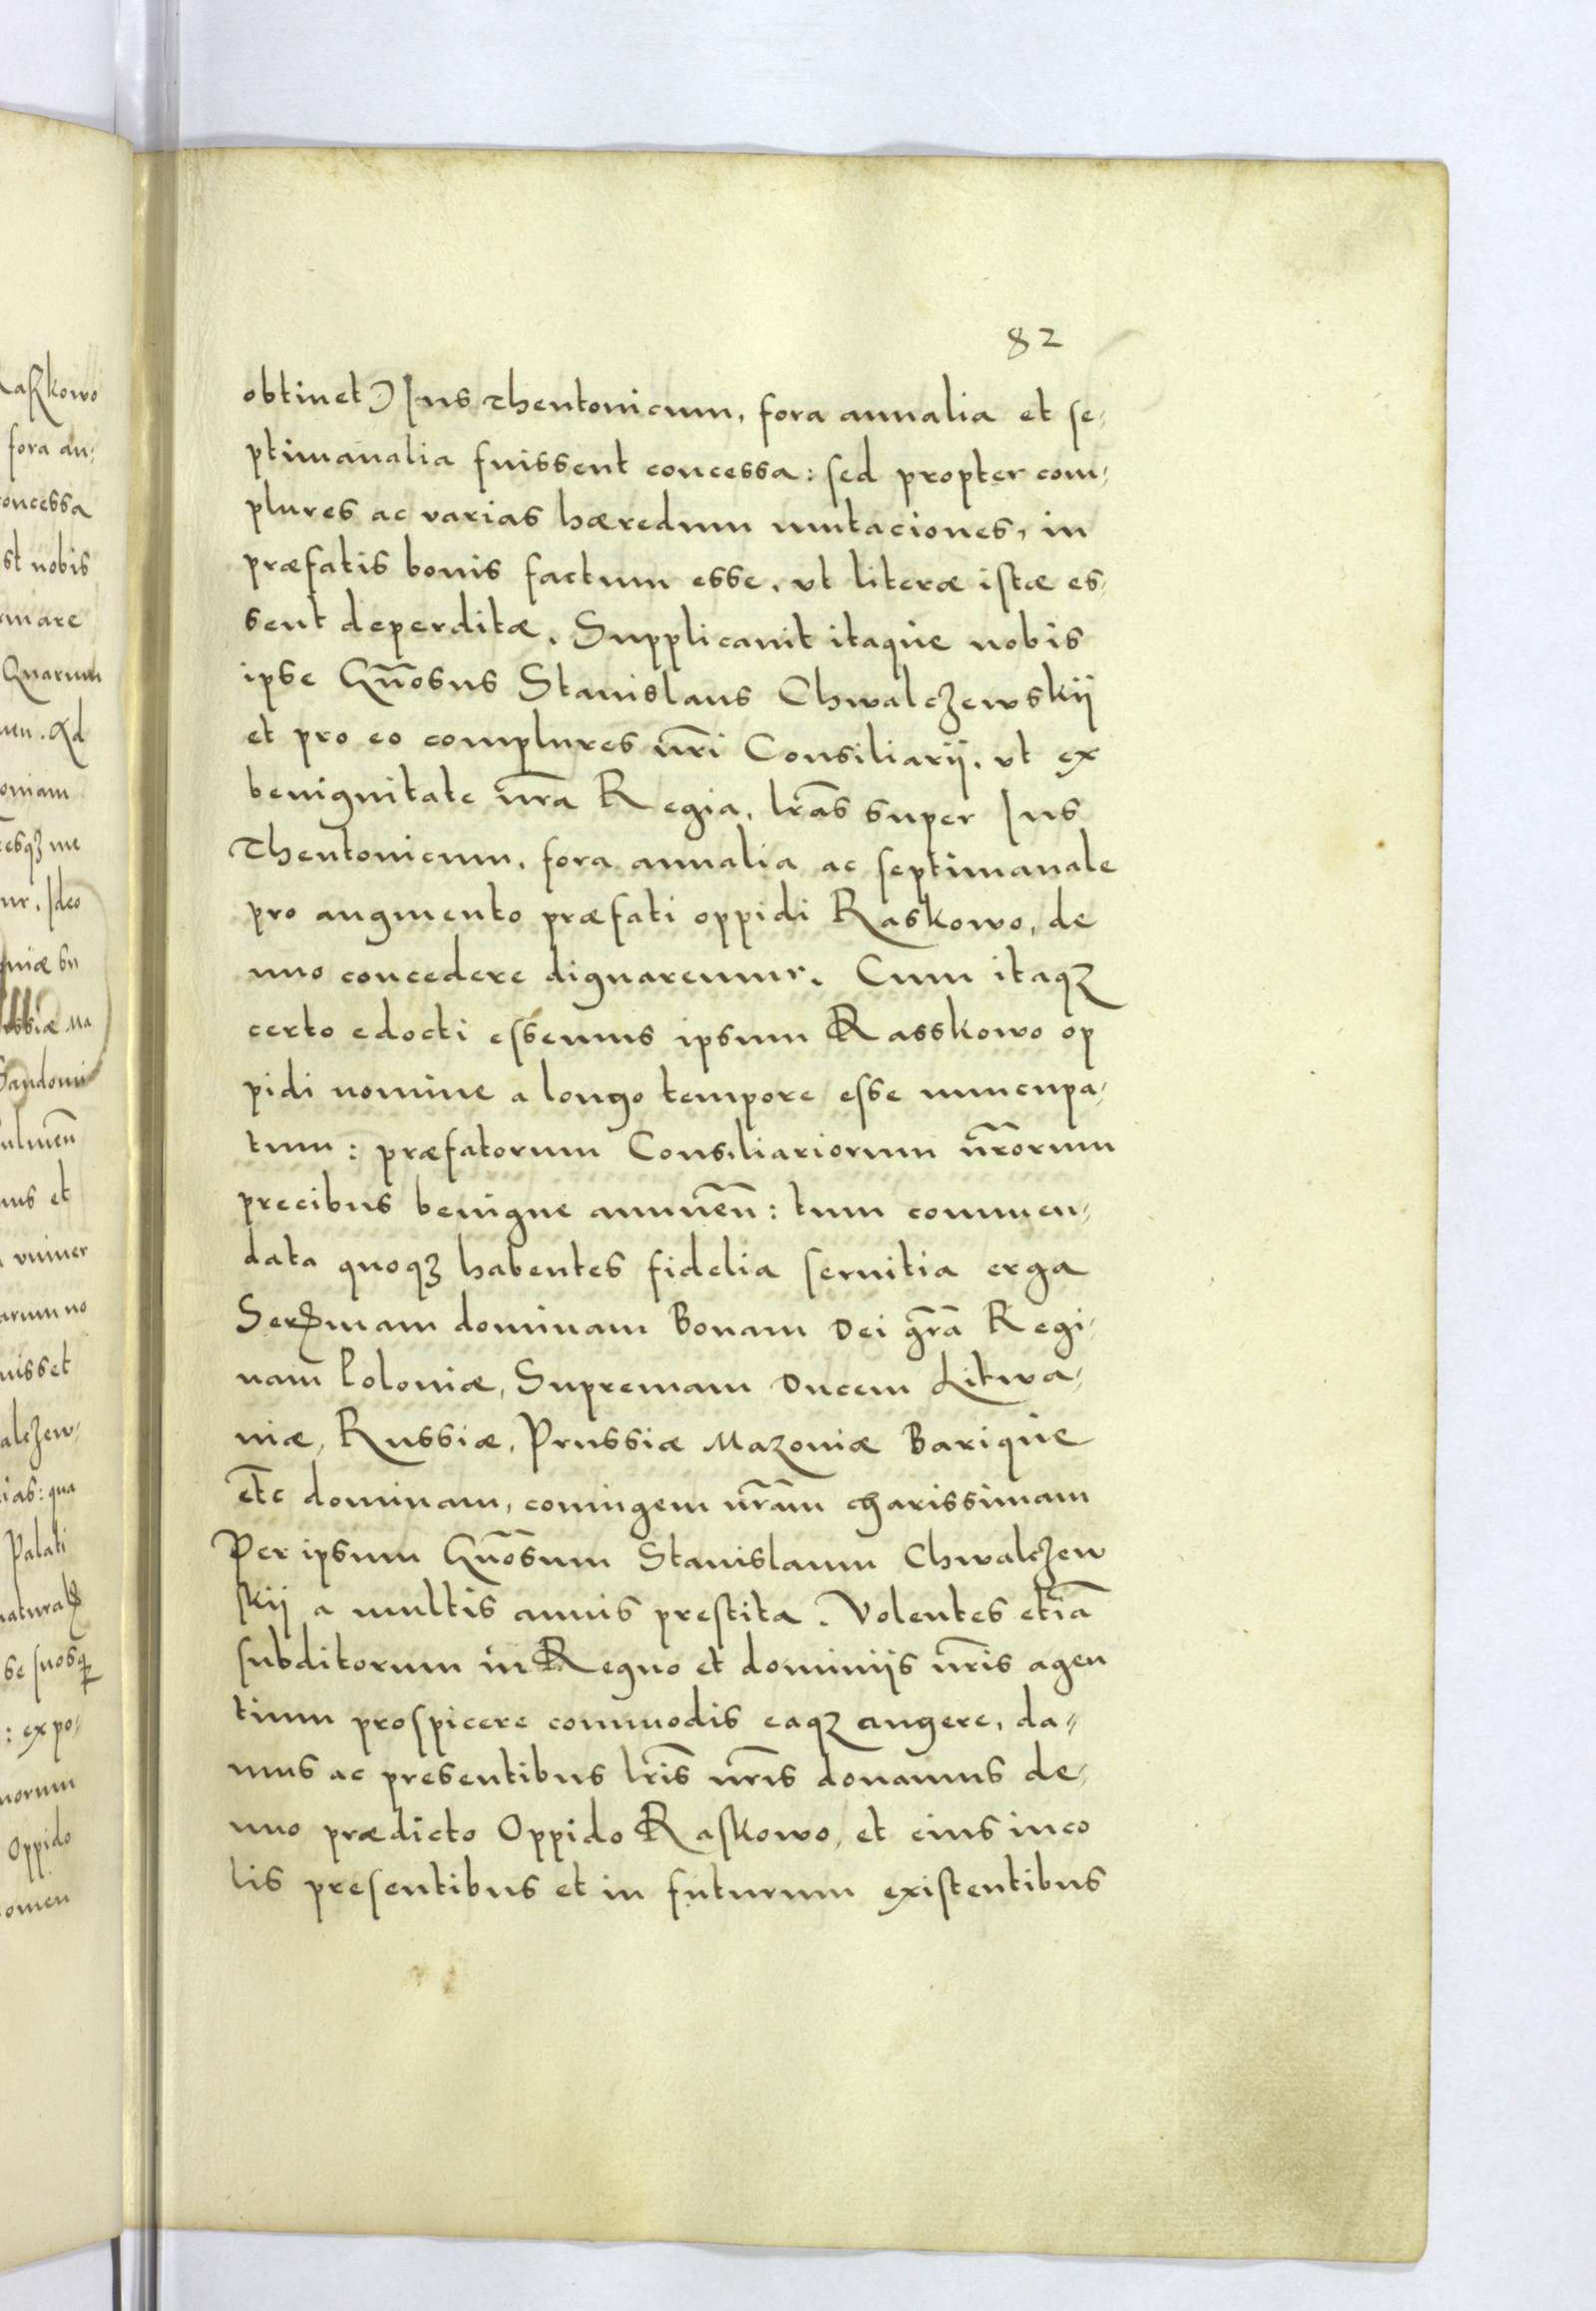 82
obtinet) Ius Theutonicum, fora annalia et se-
ptimanalia fuissent concessa: sed propter com-
plures ac varias hæredum mutaciones, in
præfatis bonis factum esse, vt literæ istæ es-
sent deperditæ. Supplicauit itaque nobis
ipse Gn̄osus Stanislaus Chwalczewskij
et pro eo complures nr̄i Consiliarij, vt ex
benignitate nr̄a Regia, lr̄as super Ius
Theutonicum, fora annalia ac septimanale
pro augmento præfati oppidi Raskowo, de
nuo concedere dignaremur. Cum itaqꝫ
certo edocti essemus ipsum Rasskowo op
pidi nomine a longo tempore esse nuncupa-
tum: præfatorum Consiliariorum nr̄orum
precibus benigne annuen̄: tum commen-
data quoqꝫ habentes fidelia seruitia erga
Serꝫmam dominam Bonam Dei gr̄a Regi-
nam Poloniæ, Supremam Ducem Litwa-
niæ, Russiæ, Prussiæ Mazoniæ Barique
et̄c dominam, coniugem nr̄am charissimam
Per ipsum Gn̄osum Stanislaum Chwalczew
skij a multis annis prestita. Volentes etiā
subditorum in Regno et dominijs nr̄is agen
tium prospicere commodis eaqꝫ augere, da-
mus ac presentibus lr̄is nr̄is donamus de-
nuo prædicto Oppido Raskowo, et eius inco
lis presentibus et in futurum existentibus
Raszkowo
fora an-
concessa
st nobis
Quarum
uen. Ad
oniam
esqꝫ me
ur. Ideo
niæ su
ussiæ Ma
Sandomi
ulmen̄
mus et
vniuer
arum no
uisset
alczew-
ias: qua
Palati
se suosqꝫ
: expo-
norum
Oppido
omen